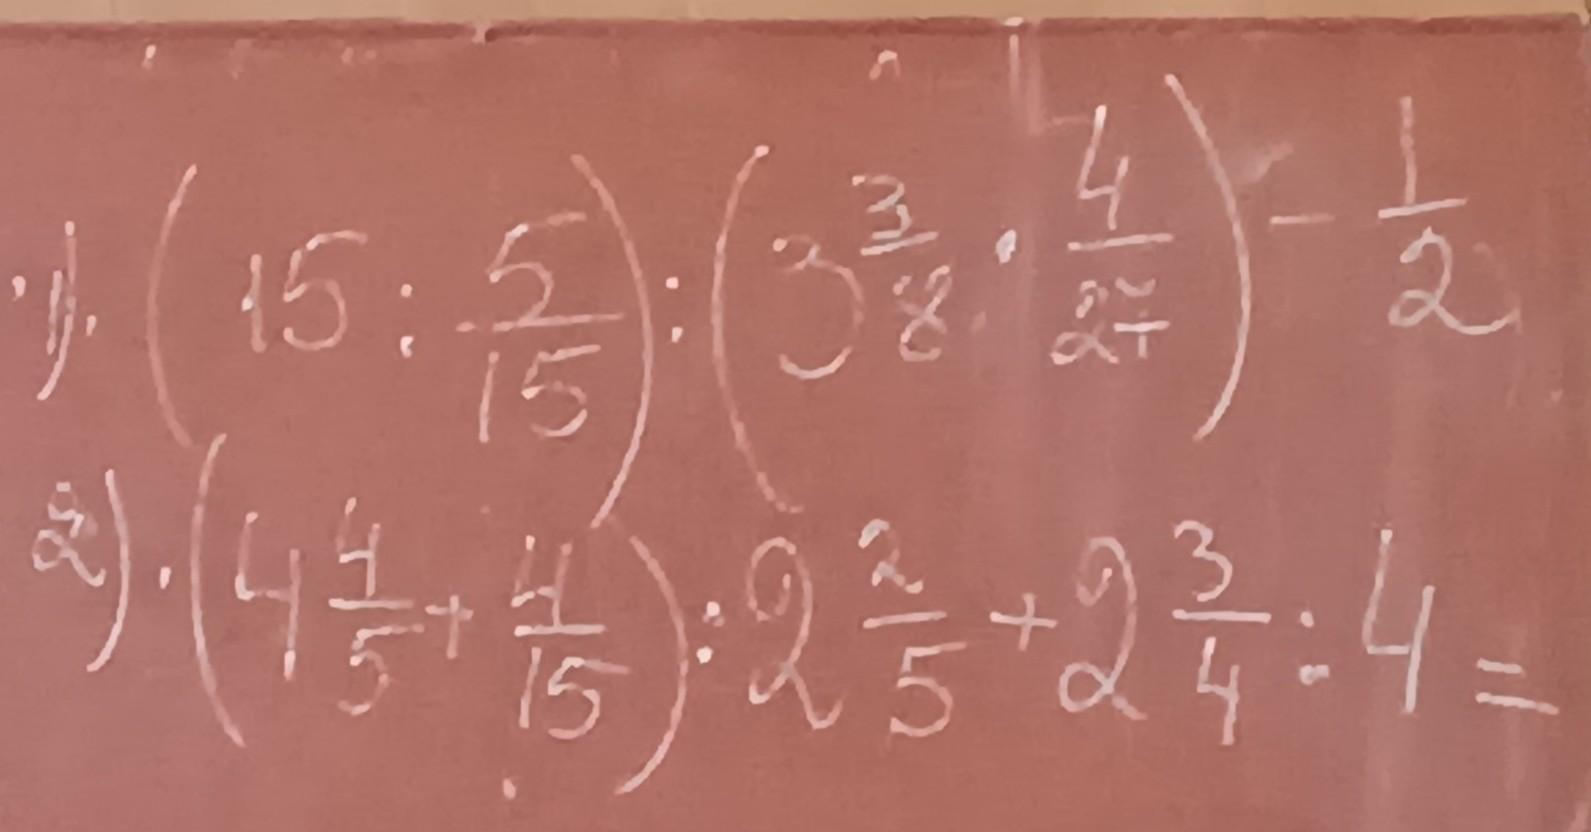 1). (15 : 5/15) : (3 3/8 · 4/27) - 1/2
2). (4 4/5 + 4/15) : 2 2/5 + 2 3/4 : 4 =